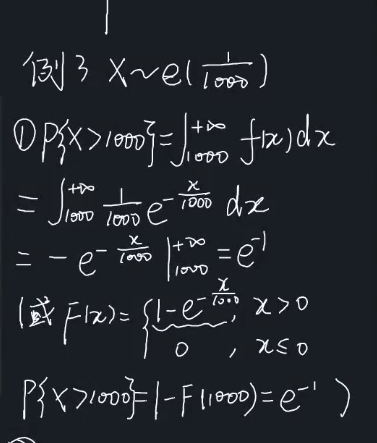 例3 X~e(1/1000)
①P{X>1000}=∫₁₀₀₀^{+∞} f(x)dx
=∫₁₀₀₀^{+∞} 1/1000 e^{-x/1000} dx
=-e^{-x/1000}|₁₀₀₀^{+∞}=e^{-1}
(或F(x)={1-e^{-x/1000}, x>0
0, x≤0
P{X>1000}=1-F(1000)=e^{-1})